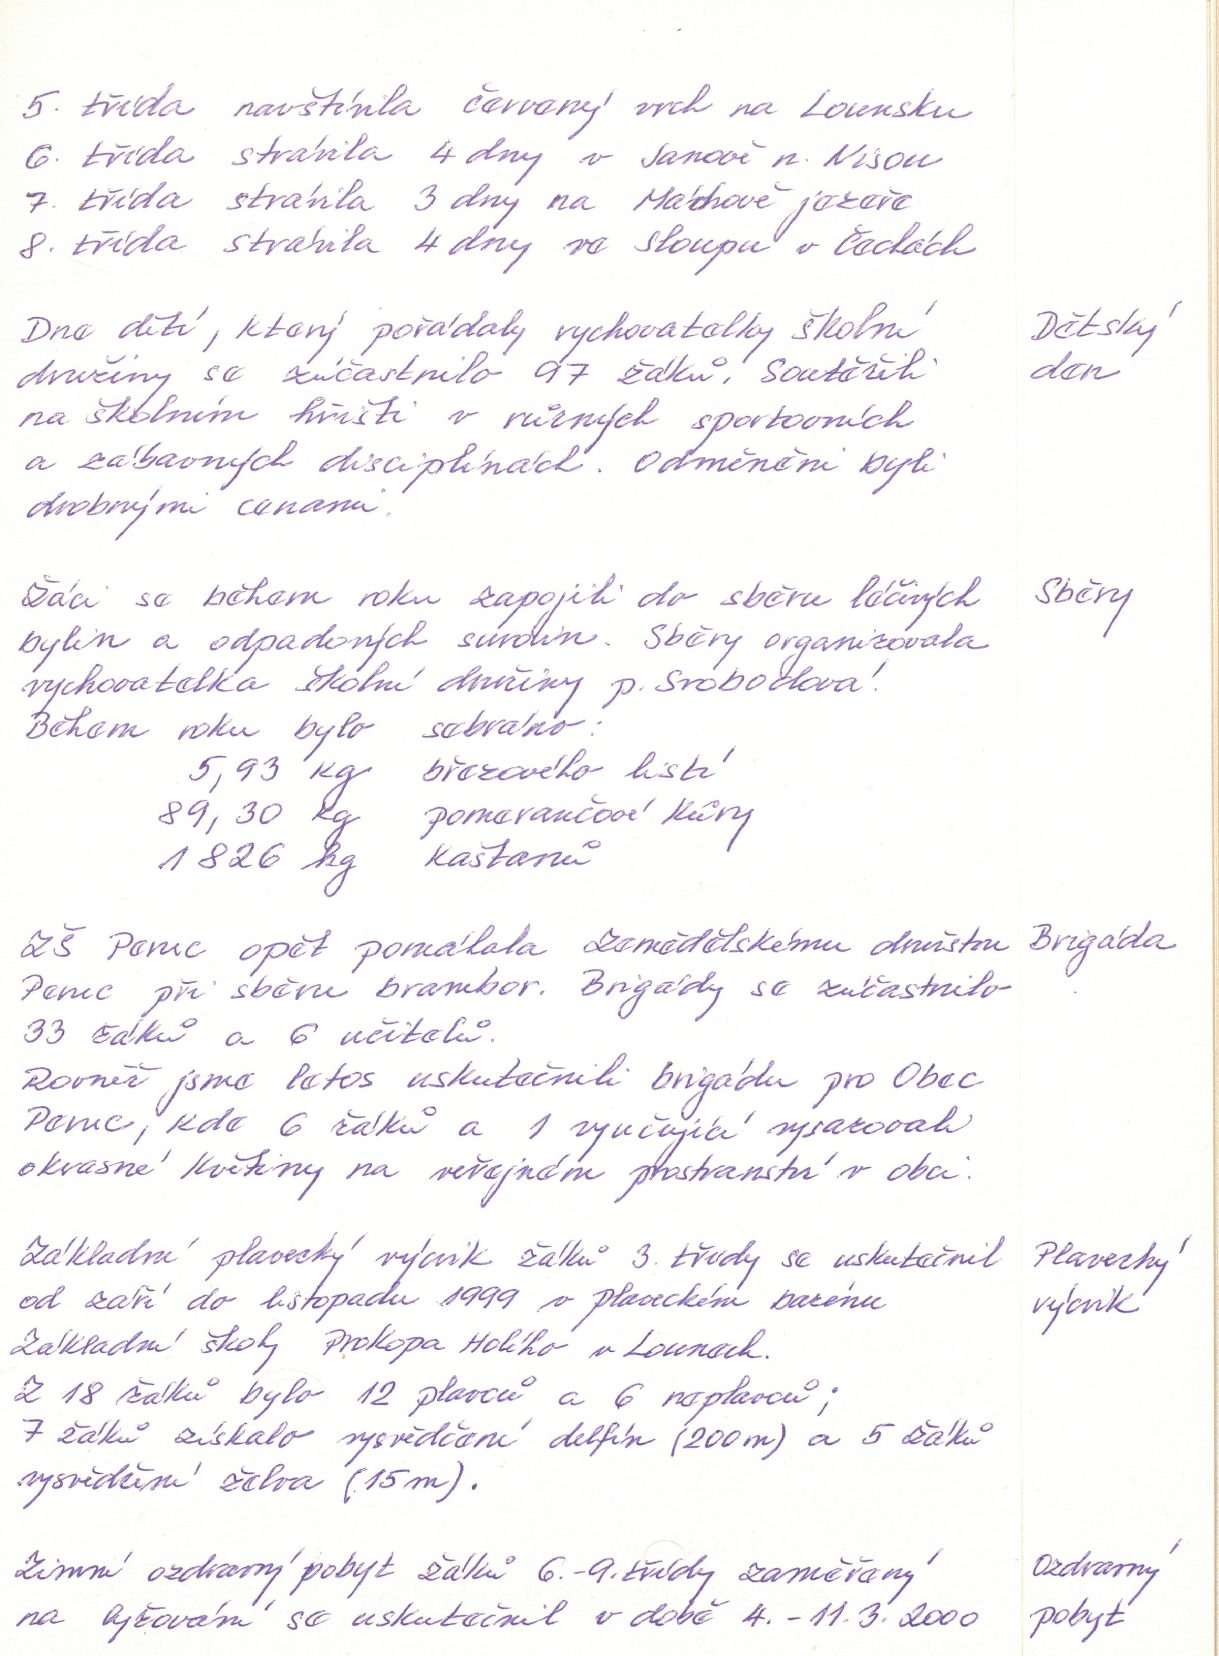 5. třída navštívila červený vrch na Lounsku
6. třída strávila 4 dny v Janově n. Nisou
7. třída strávila 3 dny na Máchově jezeře
8. třída strávila 4 dny ve Sloupu v Čechách
Dne dětí, který pořádaly vychovatelky školní
družiny se zúčastnilo 97 žáků. Soutěžili
na školním hřišti v různých sportovních
a zábavných disciplínách. Odměněni byli
drobnými cenami.
Dětský
den
Žáci se během roku zapojili do sběru léčivých
bylin a odpadových surovin. Sběry organizovala
vychovatelka školní družiny p. Svobodová.
Během roku bylo sebráno:
5,93 kg březového listí
89,30 kg pomerančové kůry
1 826 kg kaštanů
Sběry
ZŠ Peruc opět pomáhala zemědělskému družstvu
Peruc při sběru brambor. Brigády se zúčastnilo
33 žáků a 6 učitelů.
Rovněž jsme letos uskutečnili brigádu pro Obec
Peruc, kde 6 žáků a 1 vyučující vysazovali
okrasné květiny na veřejném prostranství v obci.
Brigáda
Základní plavecký výcvik žáků 3. třídy se uskutečnil
od září do listopadu 1999 v plaveckém bazénu
Základní školy Prokopa Holého v Lounech.
Z 18 žáků bylo 12 plavců a 6 neplavců;
7 žáků získalo vysvědčení delfín (200m) a 5 žáků
vysvědčení želva (15 m).
Plavecký
výcvik
Zimní ozdravný pobyt žáků 6.-9. třídy zaměřený
na lyžování se uskutečnil v době 4. - 11. 3. 2000
Ozdravný
pobyt